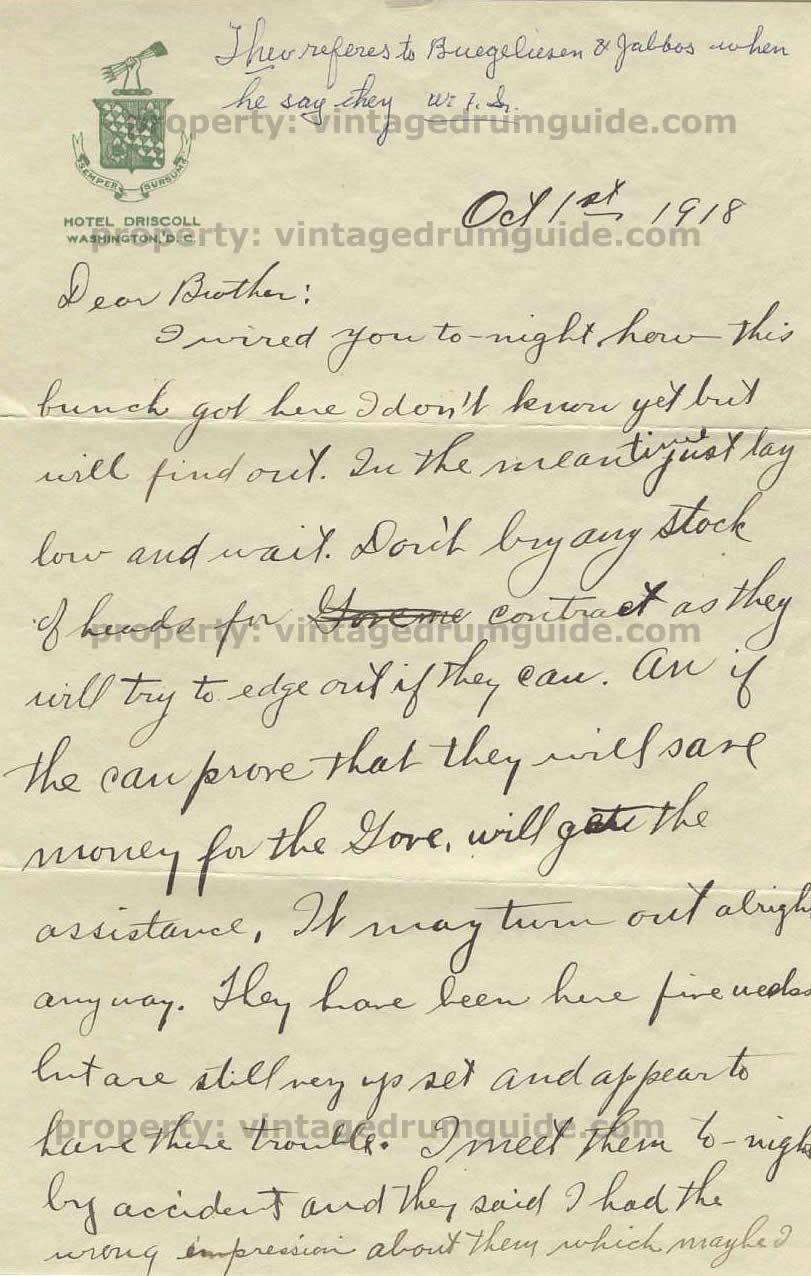 Theo referes to Buegeleisen & Jabbos when
he say they W. F. Sr.
property: vintagedrumguide.com
SEMPER SURSUM
HOTEL DRISCOLL
WASHINGTON, D. C.
property: vintagedrumguide.com
Oct 1st 1918
Dear Brother:
I wired you to-night how this
bunch got here I don't know yet but
will find out. In the meantime just lay
low and wait. Don't buy any stock
of heads for Governe contract as they
property: vintagedrumguide.com
will try to edge out if they can. An if
the can prove that they will save
money for the Gove, will get the
assistance, It may turn out alright
anyway. They have been here five weeks
but are still very up set and appear to
have there trouble. I meet them to-night
property: vintagedrumguide.com
by accident and they said I had the
wrong impression about them which maybe I